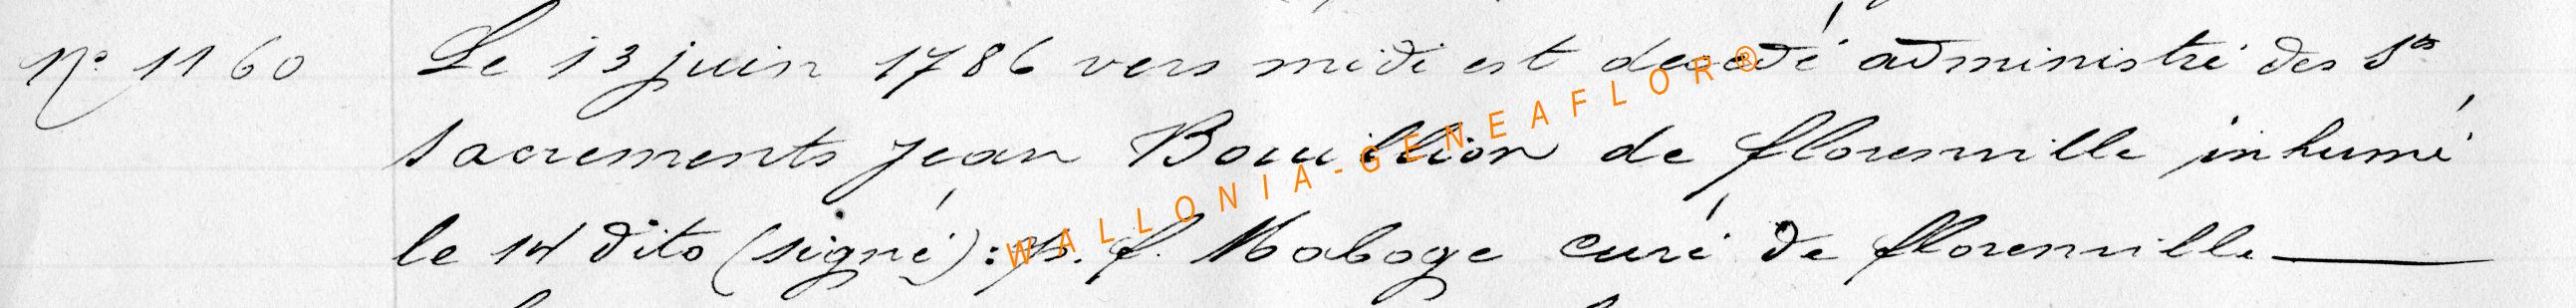 N° 1160 Le 13 juin 1786 vers midi est decedé administré des Sts
sacrements jean Bouillion de florenville inhumé
le 14 dito (signé): f. Maboge curé de florenville
WALLONIA-GENEAFLOR®